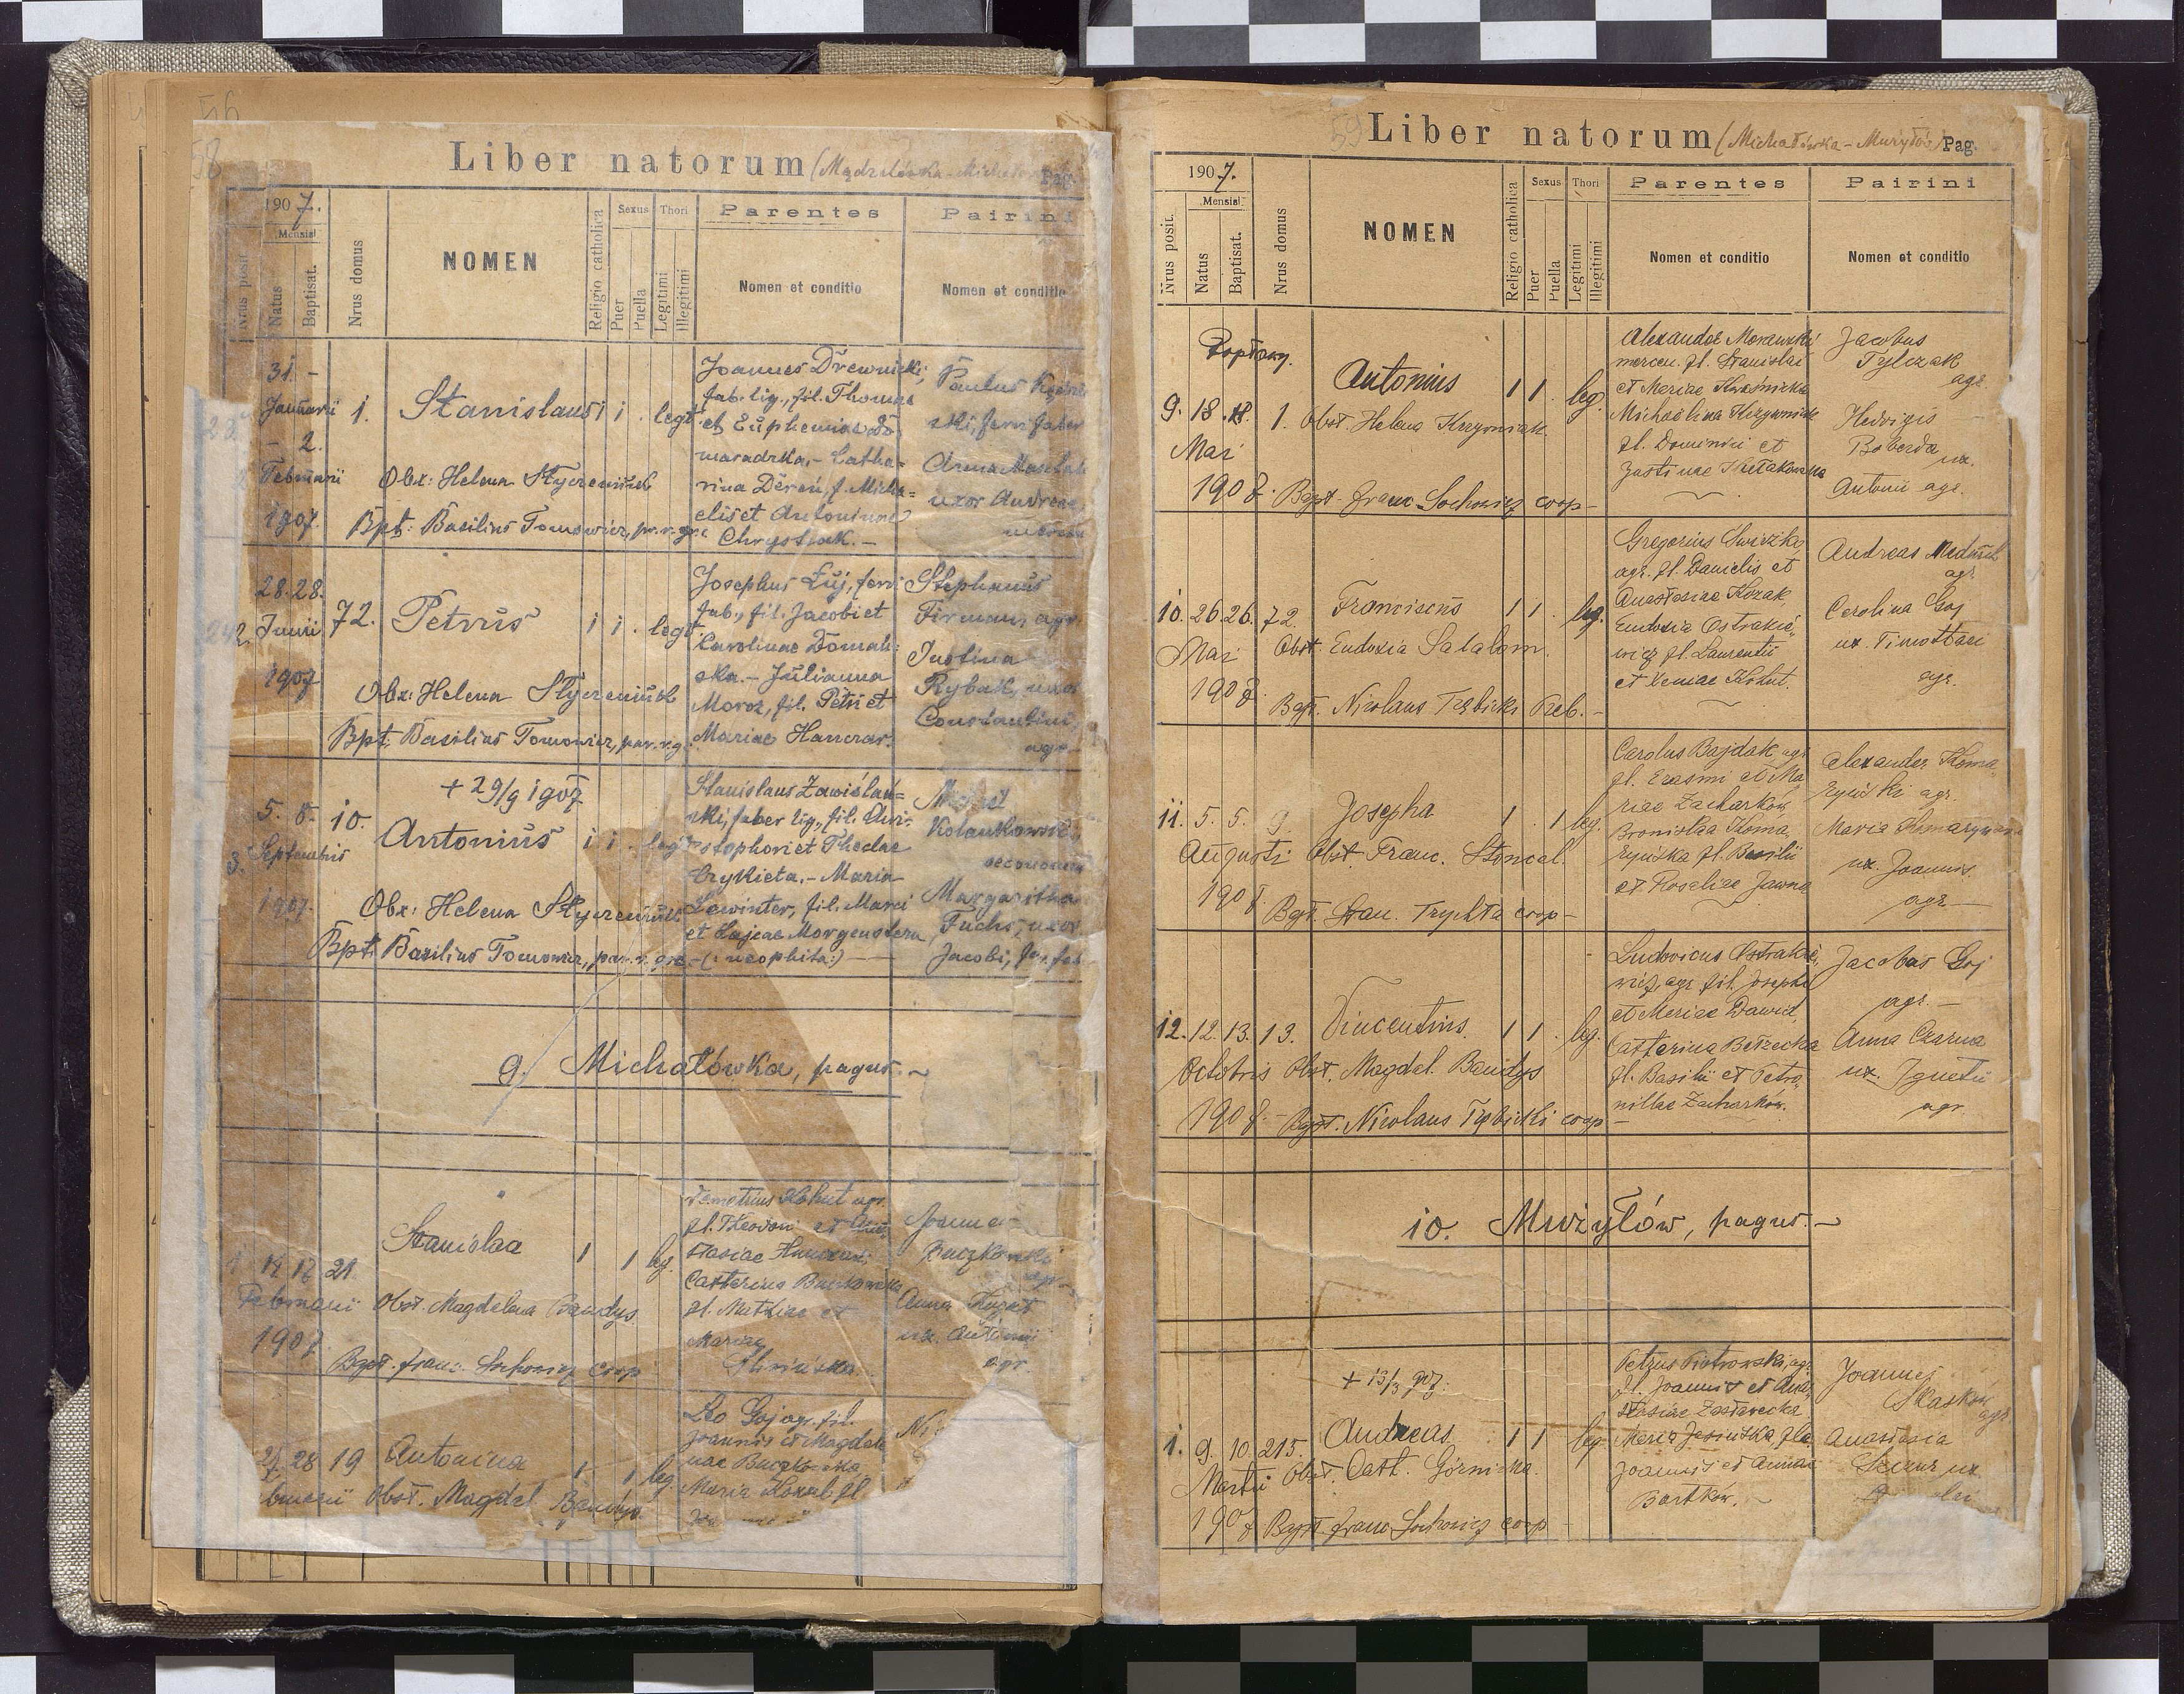 58
Liber natorum (Mądzelówka - Michałów Pag.
1907.
Mensis
Nrus posit.
Natus
Baptisat.
Nrus domus
NOMEN
Religio catholica
Sexus
Puer
Puella
Thori
Legitimi
Illegitimi
Parentes
Nomen et conditio
Patrini
Nomen et conditio
31. -
Januarii
- 2.
Februarii
1907.
1.
Stanislaus
1 1 . legt.
Obx: Helena Styczeniuk
Bpt: Basilius Tomowicz, par. r. gr.
Joannes Drewnicki,
fab. lig., fil. Thomae
et Euphemiae Do
maradzka, - Catha=
rina Dereń, f. Micha=
elis et Antoninae
Chrystiak. -
Paulus
ski, ferri faber
Anna
uxor Andreae
28. 28.
Junii
1907
72.
Petrus
1 1 . legt.
Obx: Helena Styczeniuk
Bpt: Basilius Tomowicz, par. r. g.
Josephus Łuj, ferri
fab., fil. Jacobi et
Carolinae Domań-
ska. - Julianna
Moroz, fil. Petri et
Mariae Hanczar.
Stephanus
Firman, agr.
Justina
Rybak, uxor
Constantini
agr.
+ 29/9 1907
3.
5. 8.
Septembris
1907.
10.
Antonius
1 1 . legt
Obx: Helena Styczeniuk
Bpt: Basilius Tomowicz, par. r. gr.
Stanislaus Zawiślań=
ski, faber lig., fil. Chri-
stophori et Theclae
Crykieta. - Maria
Lewinter, fil. Marci
et Lajeae Morgenstern
- (: neophita:) -
Kolankowski
oeconomus
Margaritha
Fuchs, uxor
Jacobi, fer. fab.
9. Michałówka, pagus. ~
1 14 17 21
Februarii
1907
Stanislaa
1 1 leg.
Obst. Magdalena Bandys
Bapt. Franc. Sochowicz coop
Demetrius Kohut agr.
fl. Theodori et Ana
stasiae
Catherina Buczkowska
fl. Mathiae et
Mariae
Joannes
Buczkowski
agr.
Anna
ux. Antonii
agr.
27 28 19
bruarii
Antonina
1 . 1 leg.
Obst. Magdal. Bandys
Leo Goj agr. fil.
Joannis et Magdale
nae Buczkowska
Maria Kozub fl.
59
Liber natorum (Michałówka - Mużyłów) Pag.
1907.
Mensis
Nrus posit.
Natus
Baptisat.
Nrus domus
NOMEN
Religio catholica
Sexus
Puer
Puella
Thori
Legitimi
Illegitimi
Parentes
Nomen et conditio
Patrini
Nomen et conditio
9. 18. 18. 1.
Mai
1907.
Antonius
1 1 . leg.
Obst. Helena Krzywniak
Bapt. Franc. Sochowicz coop -
Alexander Morawski
mercen. fl. Stanislai
et Mariae Kwaśnicka
Michaëlina Krzywniak
fl. Dominici et
Justinae
Jacobus
Tylczak
agr.
Hedvigis
Boberda ux.
Antonii agr.
10. 26. 26. 72.
Mai
1907.
Franciscus
1 1 . leg.
Obst. Eudoxia Salalom.
Bapt. Nicolaus Trębicki Preb. -
Gregorius Swiszko
agr. fl. Danielis et
Anastasiae Kozak,
Eudoxia Ostrakie
wicz fl. Laurentii
et Xeniae Kohut.
Andreas
agr.
Carolina Goj
ux. Timothaei
agr.
11. 5. 5. 9.
Augusti
1907.
Josepha
1 . 1 leg.
Obst. Franc. Stoncel.
Bapt. Stan. Trychta coop -
Carolus Bajdak agr.
fl. Erasmi et Ma
riae Zacharków,
Bronisłaa Koma
ryńska fl. Basilii
et Rosaliae Jawna
Alexander Koma
ryński agr.
Maria Komaryńska
ux. Joannis.
agr -
12. 12. 13. 13.
Octobris
1907. -
Vincentius
1 1 . leg.
Obst. Magdal. Bandys
Bapt. Nicolaus Trębicki coop -
Ludovicus Ostrakie
wicz, agr. fil. Josephi
et Mariae Dawid,
Catherina Bełzecka
fl. Basilii et Petro
nillae Zacharków.
Jacobus Goj
agr. -
Anna Czarna
ux. Ignatii
agr.
10. Mużyłów, pagus. ~
+ 13/3 907.
1. 9. 10. 215.
Martii
1907
Andreas
1 1 . leg.
Obst. Cath. Górnicka
Bapt. Franc Sochowicz coop -
Petrus Piotrowski, agr.
fl. Joannis et Ana
stasiae Zastawecka
Maria Jasińska, fla
Joannis et Annae
Bartków. ~
Joannes
Skasków
agr
Anastasia
Szczur ux